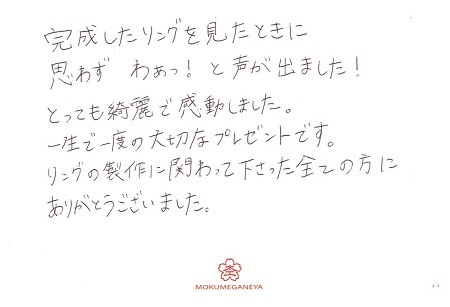 完成したリングを見たときに
思わず わぁっ! と声が出ました!
とっても綺麗で感動しました。
一生で一度の大切なプレゼントです。
リングの製作に関わって下さった全ての方に
ありがとうございました。
MOKUMEGANEYA